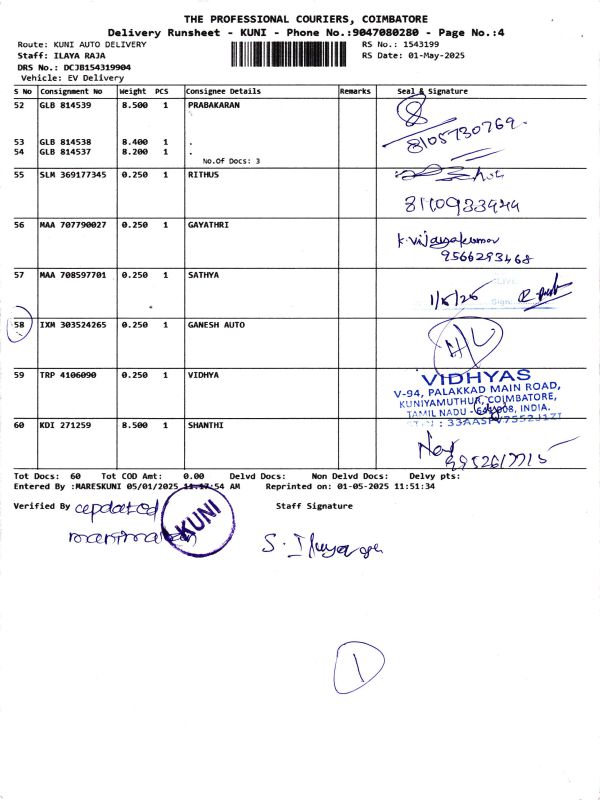 THE PROFESSIONAL COURIERS, COIMBATORE
Delivery Runsheet - KUNI - Phone No.:9047080280 - Page No.:4
Route: KUNI AUTO DELIVERY RS No.: 1543199
Staff: ILAYA RAJA RS Date: 01-May-2025
DRS No.: DCJB154319904
Vehicle: EV Delivery
S No Consignment No Weight PCS Consignee Details Remarks Seal & Signature
52 GLB 814539 8.500 1 PRABAKARAN
8105730769.
53 GLB 814538 8.400 1 .
54 GLB 814537 8.200 1 .
No.Of Docs: 3
55 SLM 369177345 0.250 1 RITHUS
56 MAA 707790027 0.250 1 GAYATHRI
K.Vijayakumar
9566293468
57 MAA 708597701 0.250 1 SATHYA
1/5/25
58 IXM 303524265 0.250 1 GANESH AUTO
59 TRP 4106090 0.250 1 VIDHYA
VIDHYAS
V-94, PALAKKAD MAIN ROAD,
KUNIYAMUTHUR, COIMBATORE,
TAMIL NADU - 641008, INDIA.
60 KDI 271259 8.500 1 SHANTHI
Tot Docs: 60 Tot COD Amt: 0.00 Delvd Docs: Non Delvd Docs: Delvy pts:
Entered By :MARESKUNI 05/01/2025 11:17:54 AM Reprinted on: 01-05-2025 11:51:34
Verified By Staff Signature
KUNI
1